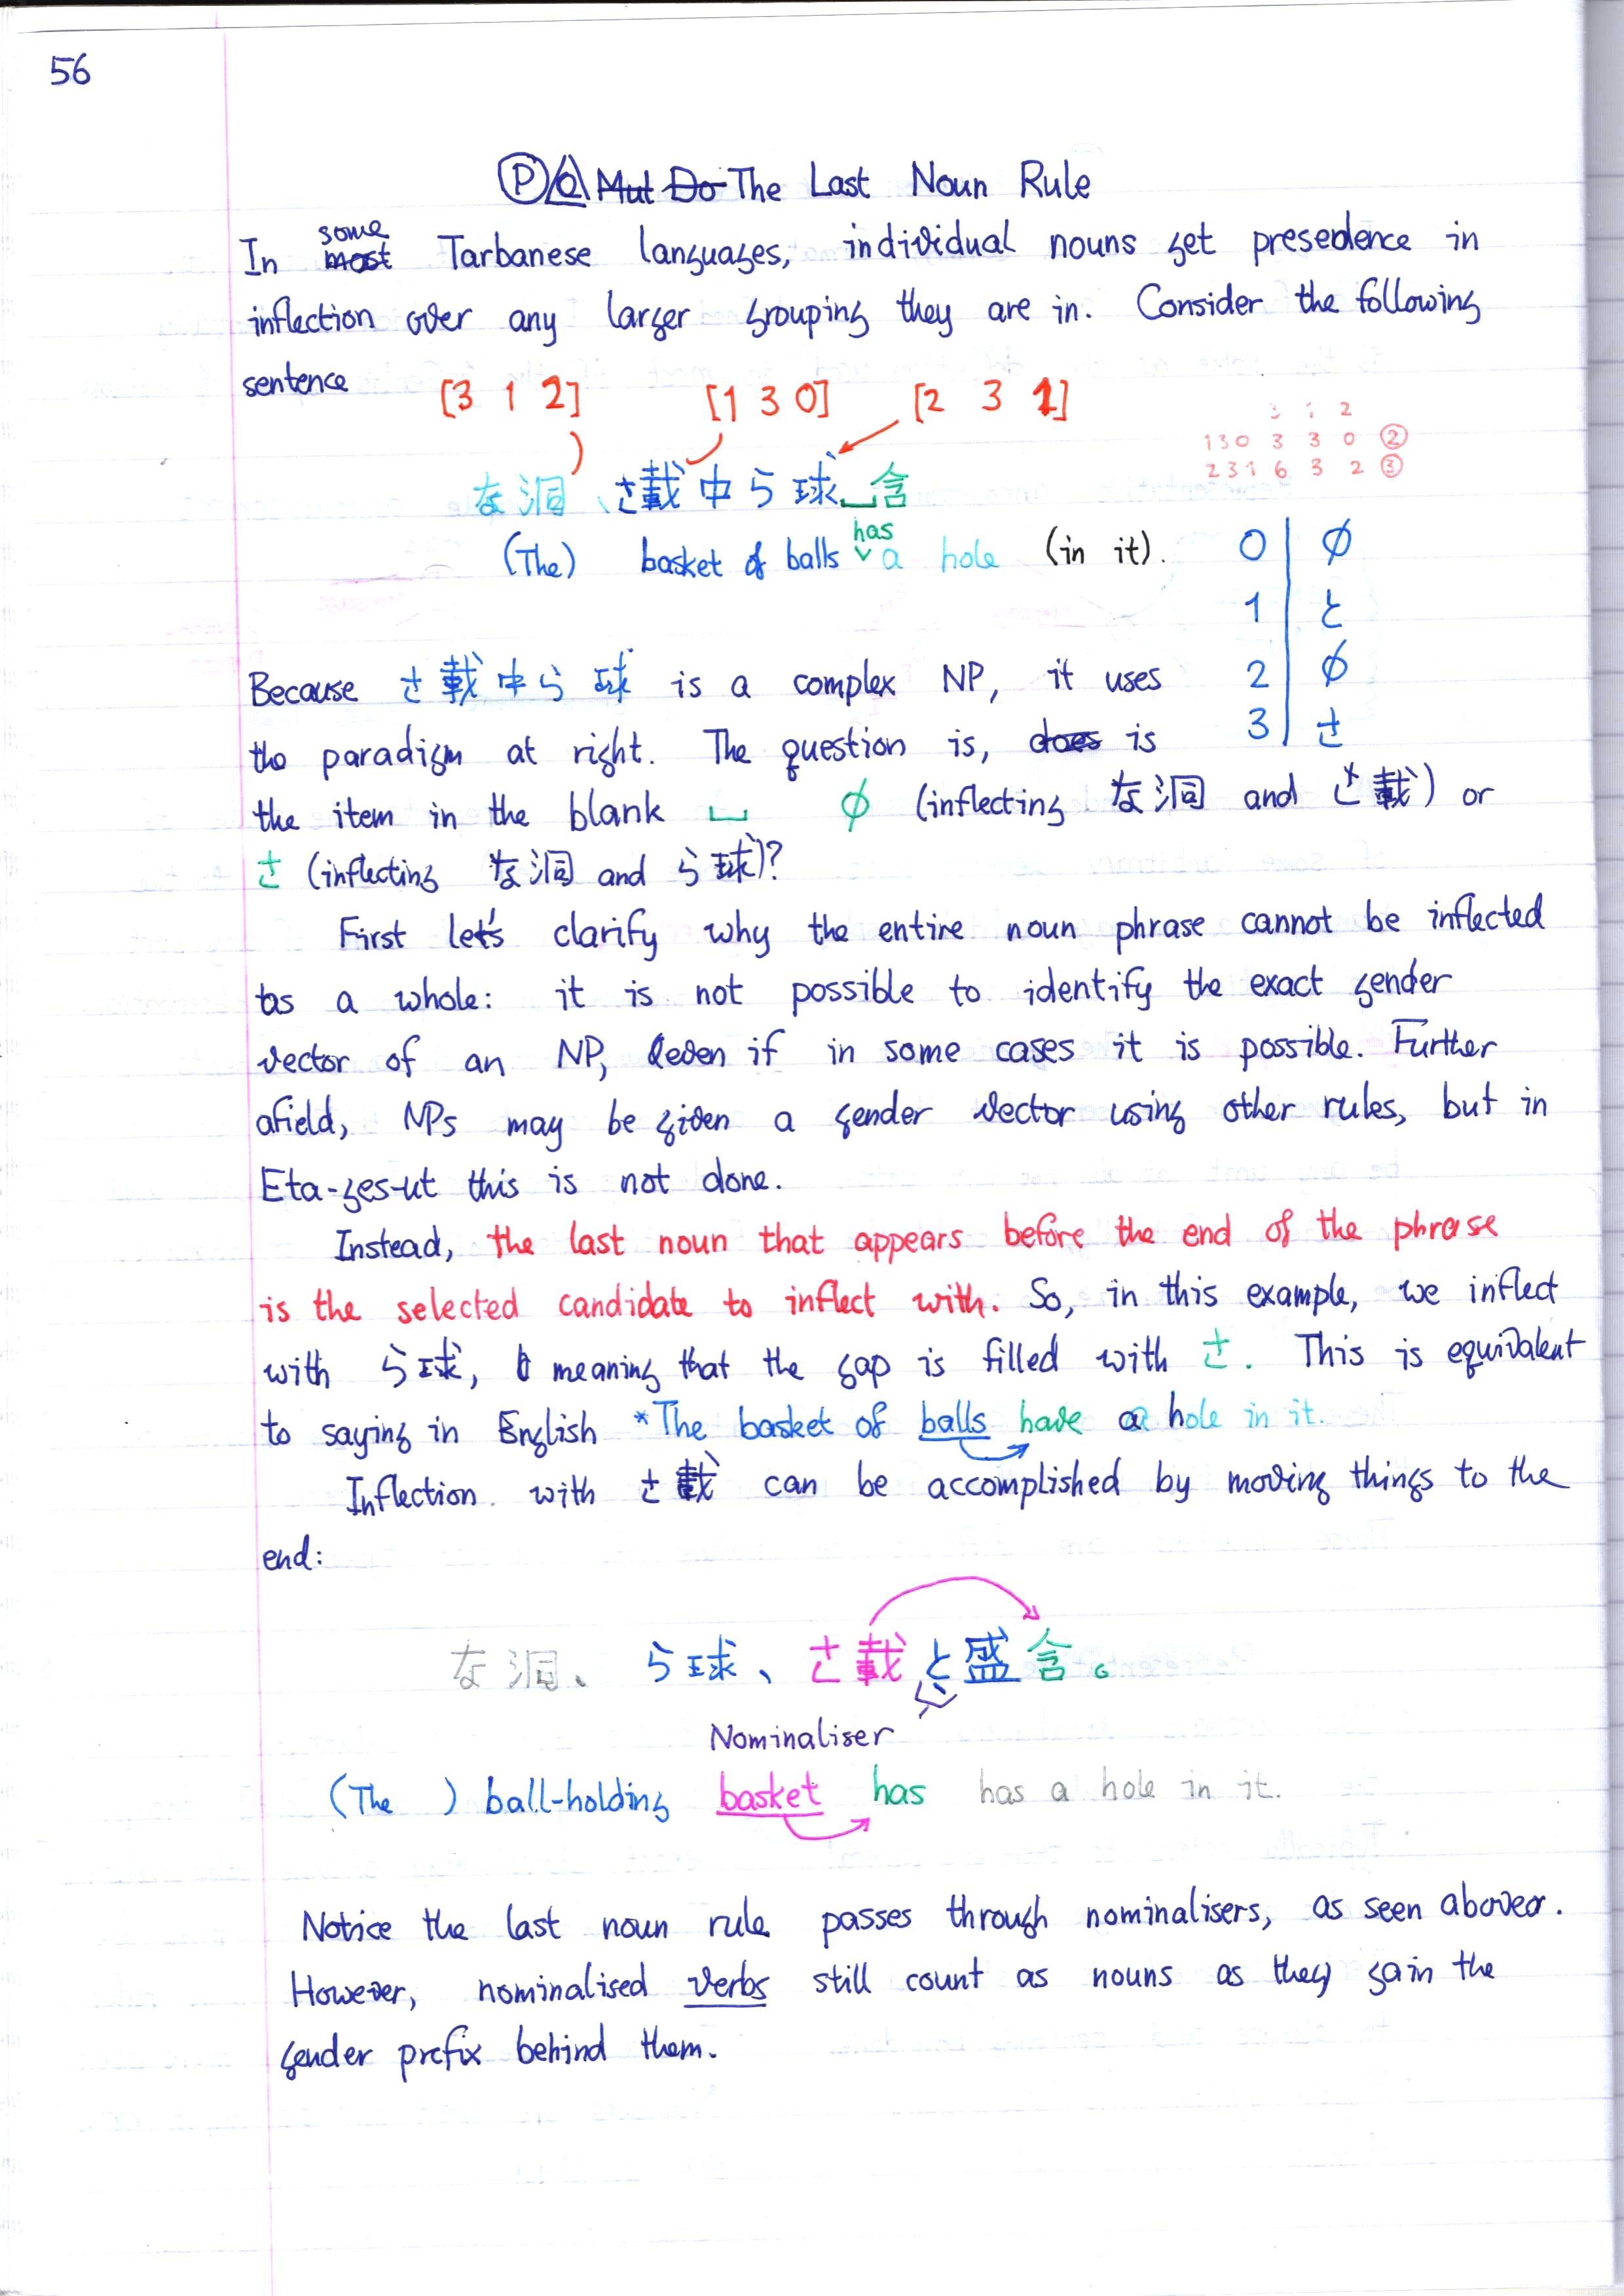 56
Ⓟ The Last Noun Rule
some
In most Tarbanese languages, individual nouns get presedence in
inflection over any larger grouping they are in. Consider the following
sentence
[3 1 2] [1 3 0] [2 3 1]
3 1 2
1 3 0 3 3 0 ②
2 3 1 6 3 2 ③
な洞、さ載中ら球␣含
has
(The) basket of balls a hole (in it).
0 ∅
1 と
2 ∅
3 さ
Because さ載中ら球 is a complex NP, it uses
the paradigm at right. The question is, does is
the item in the blank ␣ ∅ (inflecting な洞 and さ載) or
さ (inflecting な洞 and ら球)?
First let's clarify why the entire noun phrase cannot be inflected
as a whole: it is not possible to identify the exact gender
vector of an NP, even if in some cases it is possible. Further
afield, NPs may be given a gender vector using other rules, but in
Eta-ges-ut this is not done.
Instead, the last noun that appears before the end of the phrase
is the selected candidate to inflect with. So, in this example, we inflect
with ら球, meaning that the gap is filled with さ. This is equivalent
to saying in English *The basket of balls have a hole in it.
Inflection with さ載 can be accomplished by moving things to the
end:
な洞、ら球、さ載と盛含。
Nominaliser
(The ) ball-holding basket has has a hole in it.
Notice the last noun rule passes through nominalisers, as seen above.
However, nominalised verbs still count as nouns as they gain the
gender prefix behind them.